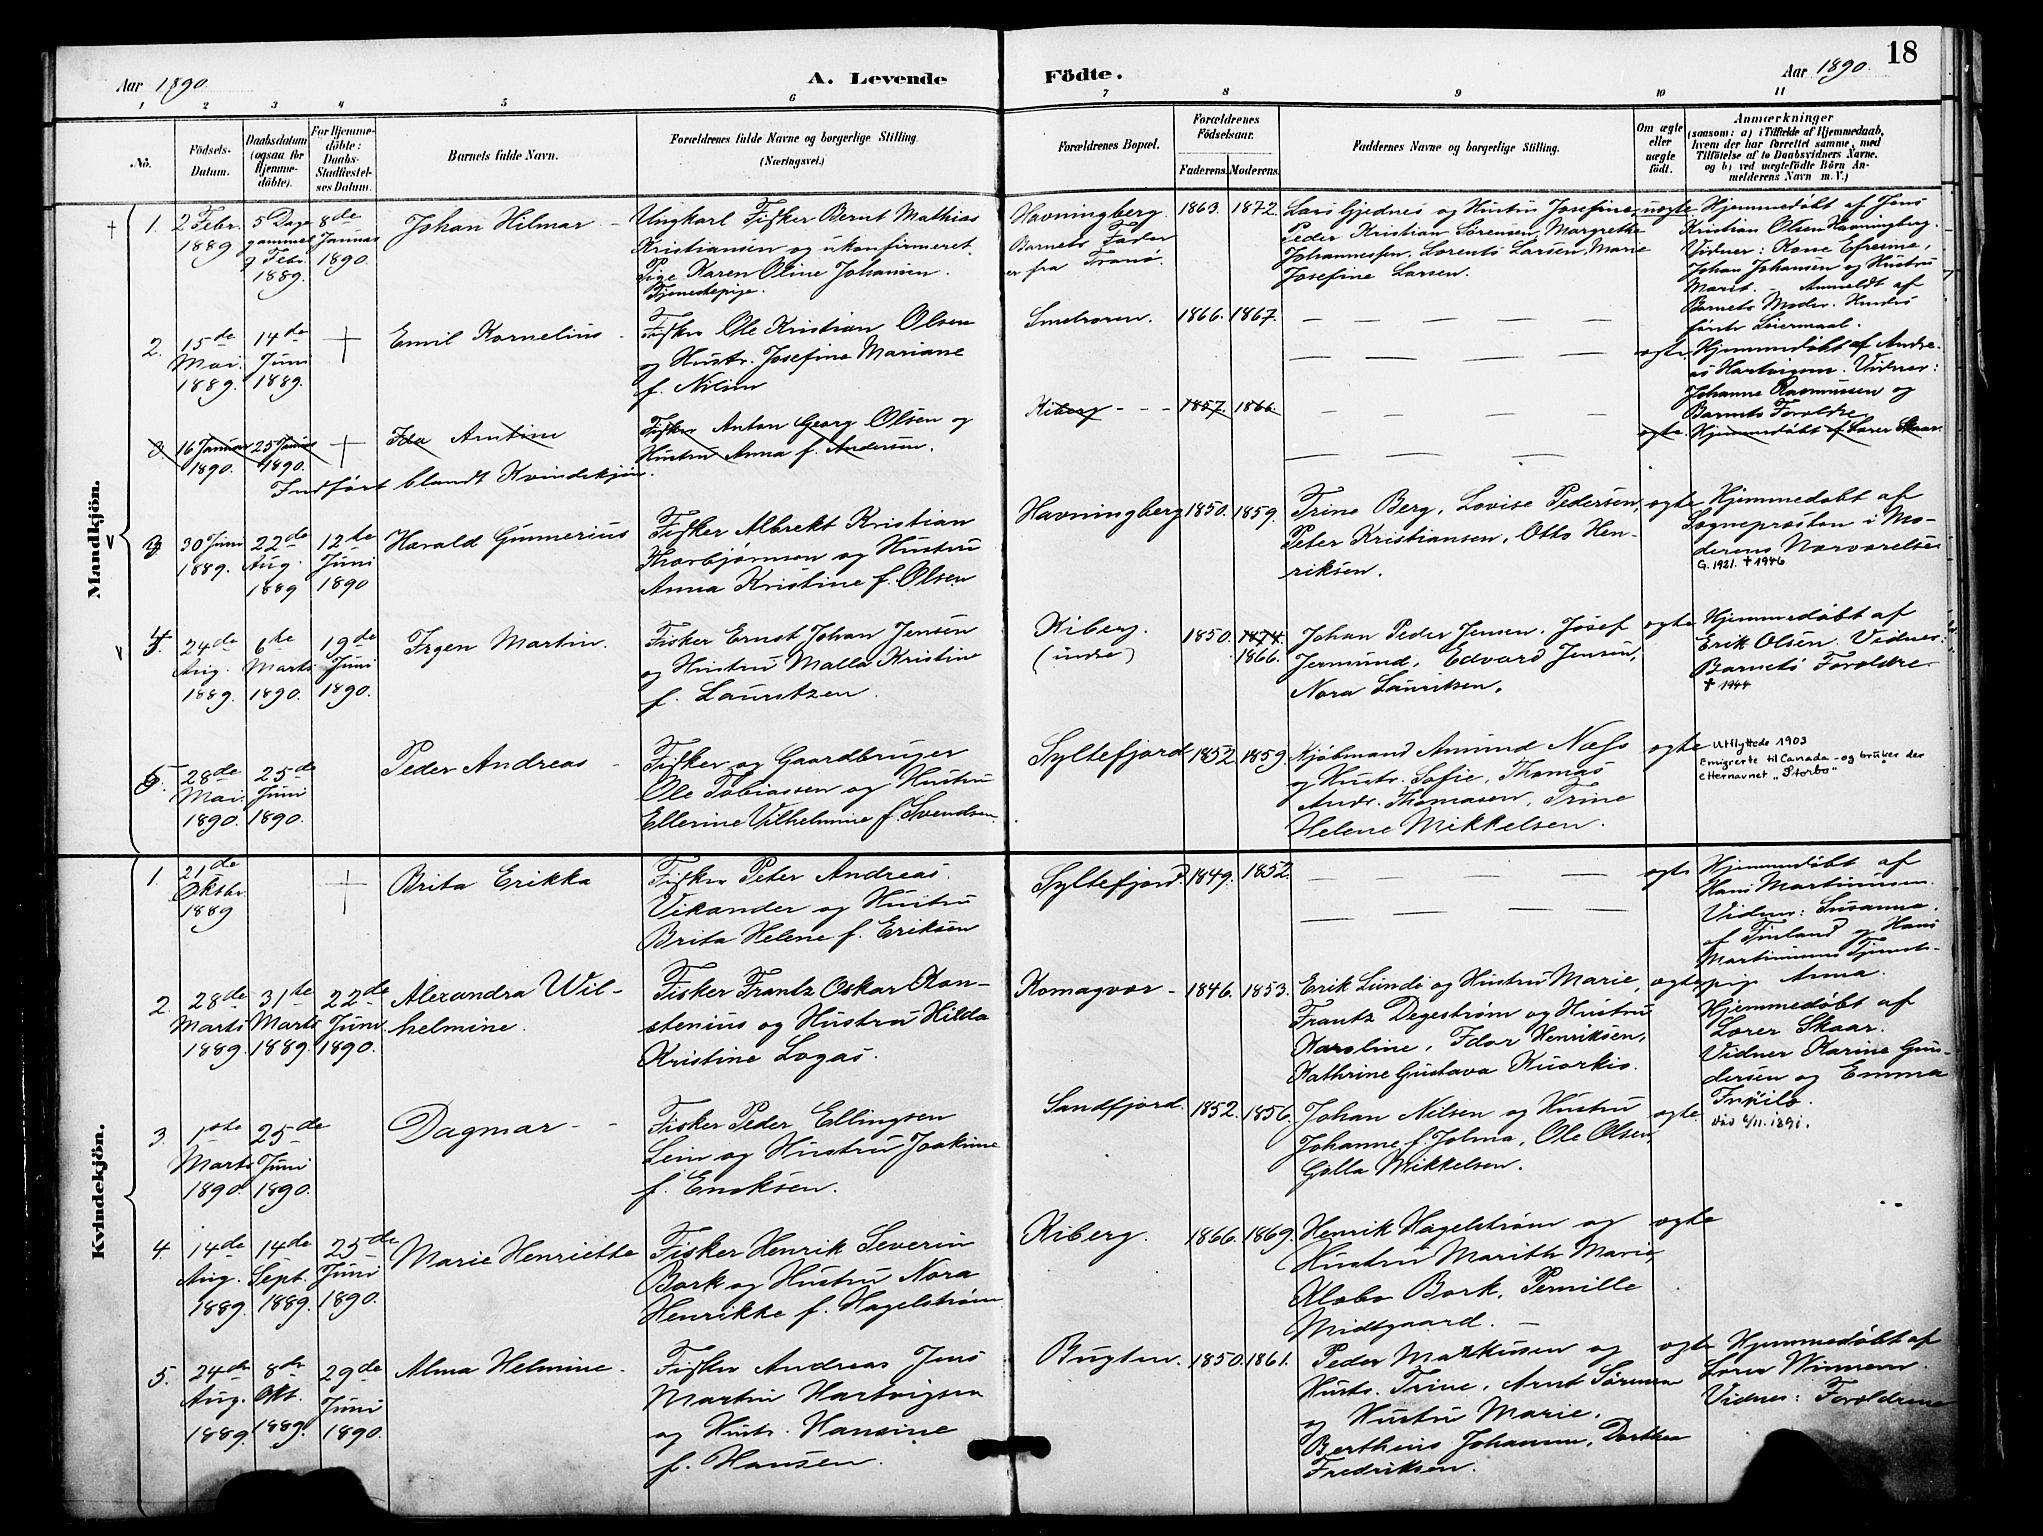 18
Aar 1890.
A. Levende
Födte.
Aar 1890.
1 2 3 4 5 6 7 8 9 10 11
No.
Födsels-
Datum.
Daabsdatum
(ogsaa for
Hjemme-
döbte).
For Hjemme-
döbte:
Daabs-
Stadfæstel-
ses Datum.
Barnets fulde Navn.
Forældrenes fulde Navne og borgerlige Stilling.
(Næringsvei.)
Forældrenes Bopæl.
Forældrenes
Födselsaar.
Faderens.
Moderens.
Faddernes Navne og borgerlige Stilling.
Om ægte
eller
uægte
födt.
Anmærkninger
(saasom: a) i Tilfælde af Hjemmedaab,
hvem der har forrettet samme, med
Tilföielse af to Daabsvidners Navne,
og b) ved uægtefödte Börn An-
melderens Navn m. V.)
Mandkjön.
1.
2 Febr.
1889
5 Dage
gammel
7 Febr.
1889.
8de
Januar
1890.
Johan Hilmar
Ungkarl Fisker Bernt Mathias
Kristiansen og ukonfirmeret
Pige Karen Oline Johansen.
Tjenestepige.
Havningberg.
Barnets Fader
er fra Tranö.
1863.
1872.
Lars Gjednes og Hustru Josefine,
Peder Kristian Sörensen, Margrethe
Johannessen, Lorents Larsen, Marie
Josefine Larsen.
uægte
Hjemmedöbt af Jens
Kristian Olsen Havningberg.
Vidner: Kone Efresine,
Johan Johansen og Hustru
Marit. - Anmeldt af
Barnets Moder. Hendes
förste Leiermaal.
2.
15de
Mai.
1889.
14de
Juni
1889.
Emil Kornelius
Fisker Ole Kristian Olsen
og Hustr. Josefine Mariane
f. Nilsen
Smelroren.
1866.
1867.
ægte
Hjemmedöbt af Andre-
as Hartvigsen. Vidner:
Johanne Rasmussen og
Barnets Forældre
3
16 Januar
1890.
25 Januar
1890.
Ida Arntine
Fisker Anton Georg Olsen og
Hustru Anna f. Andersen.
Indfört blandt Kvindekjön.
Kiberg - - -
1857.
1866.
ægte
Hjemmedöbt af Lærer Skaar
3
30 Juni
1889.
22de
Aug.
1889
12te
Juni
1890
Harald Gunnerius
Fisker Albrekt Kristian
Thorbjörnsen og Hustru
Anna Kristine f. Olsen
Havningberg
1850.
1859.
Trine Berg, Lovise Pedersen,
Peter Kristiansen, Otto Hen-
riksen.
ægte
Hjemmedöbt af
Sognepræsten i Mo-
derens Nærværelse
G. 1921. † 1946
4.
24de
Aug.
1889.
6te
Marts
1890.
19de
Juni
1890.
Irgen Martin.
Fisker Ernst Johan Jensen
og Hustru Malla Kristine
f. Lauritzen.
Kiberg.
(indre)
1850.
1874.
1866.
Johan Peder Jensen. Josef
Jermund, Edvard Jensen,
Nora Lauritsen.
ægte
Hjemmedöbt af
Erik Olsen. Vidner:
Barnets Forældre.
† 1944
5.
28de
Mai.
1890.
25de
Juni
1890.
Peder Andreas
Fisker og Gaardbruger
Ole Tobiassen og Hustru
Ellerine Vilhelmine f. Svendsen.
Syltefjord
1852
1859.
Kjöbmand Amund Næss
og Hustr. Sofie, Thomas
Andr. Thomasen, Trine
Helene Mikkelsen.
ægte
Utflyttede 1903
Emigrerte til Canada - og bruker der
etternavnet „Storbo"
Kvindekjön.
1.
21de
Oktbr.
1889
Brita Erikka
Fisker Peter Andreas
Vikander og Hustru
Brita Helene f. Eriksen
Syltefjord.
1849.
1852.
ægte
Hjemmedöbt af
Hans Martinussen.
Vidner: Susanna,
af Finland og Hans
Martinussens Tjeneste-
pige Anna.
2.
28de
Marts
1889.
31te
Marts
1889.
22de
Juni
1890.
Alexandra Wil-
helmine.
Fisker Frantz Oskar Kon-
stenius og Hustru Hilda
Kristine Logas.
Komagvær -
1846.
1853.
Erik Lundö og Hustru Marie,
Frantz Degeström og Hustru
Karoline, Idar Henriksen,
Kathrine Gustava Kuorkis.
ægte
Hjemmedöbt af
Lærer Skaar.
Vidner Karine Gun-
dersen og Emma
3.
1ste
Marts
1890.
25de
Juni
1890.
Dagmar - -
Fisker Peder Ellingsen
Lein og Hustru Joakime
f. Enoksen.
Sandfjord.
1852.
1856.
Johan Nilsen og Hustru
Johanne f. Jolma, Ole Olsen,
Golla Mikkelsen.
ægte.
död 6/11. 1891.
4.
14de
Aug.
1889.
14de
Sept.
1889.
25de
Juni
1890.
Marie Henriette
Fisker Henrik Severin
Bork og Hustru Nora
Henrikke f. Hagelström
Kiberg.
1866.
1869.
Henrik Hagelström og
Hustru Marith Marie,
Klobo Bork, Pernille
Midtgaard.
ægte
5.
24de
Aug.
1889.
8de
Okt.
1889.
29de
Juni
1890.
Alma Helmine.
Fisker Andreas Jens
Martin Hartvigsen
og Hustr. Hansine
f. Hansen.
Bugten.
1850.
1861.
Peder Markusen og
Hustr. Trine, Arnt Sörensen
og Hustru Marie,
Berthens Johanne, Dorthea
Fredriksen.
ægte
Hjemmedöbt af
Lærer Winnem.
Vidner: Forældrene